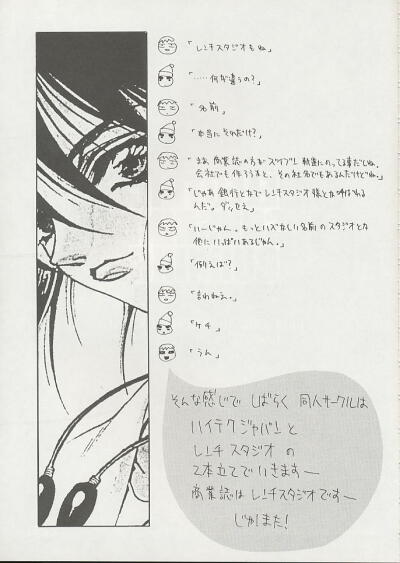 「レンチスタジオもね」
「……何が違うの？」
「名前」
「本当にそれだけ？」
「まあ、商業誌の方が
会社でも作ろうと、その社名でもあるんだけどね」
「じゃあ銀行とかでレンチスタジオ様とか呼ばれる
んだ。ダッセえ」
「いーじゃん。もっとハズかしい名前のスタジオとか
他にいっぱいあるじゃん。」
「例えば？」
「言わねえ。」
「ケチ」
「うん」
そんな感じで しばらく 同人サークルは
ハイテクジャパンと
レンチスタジオの
2本立てでいきます—
商業誌はレンチスタジオです—
じゃ！また！